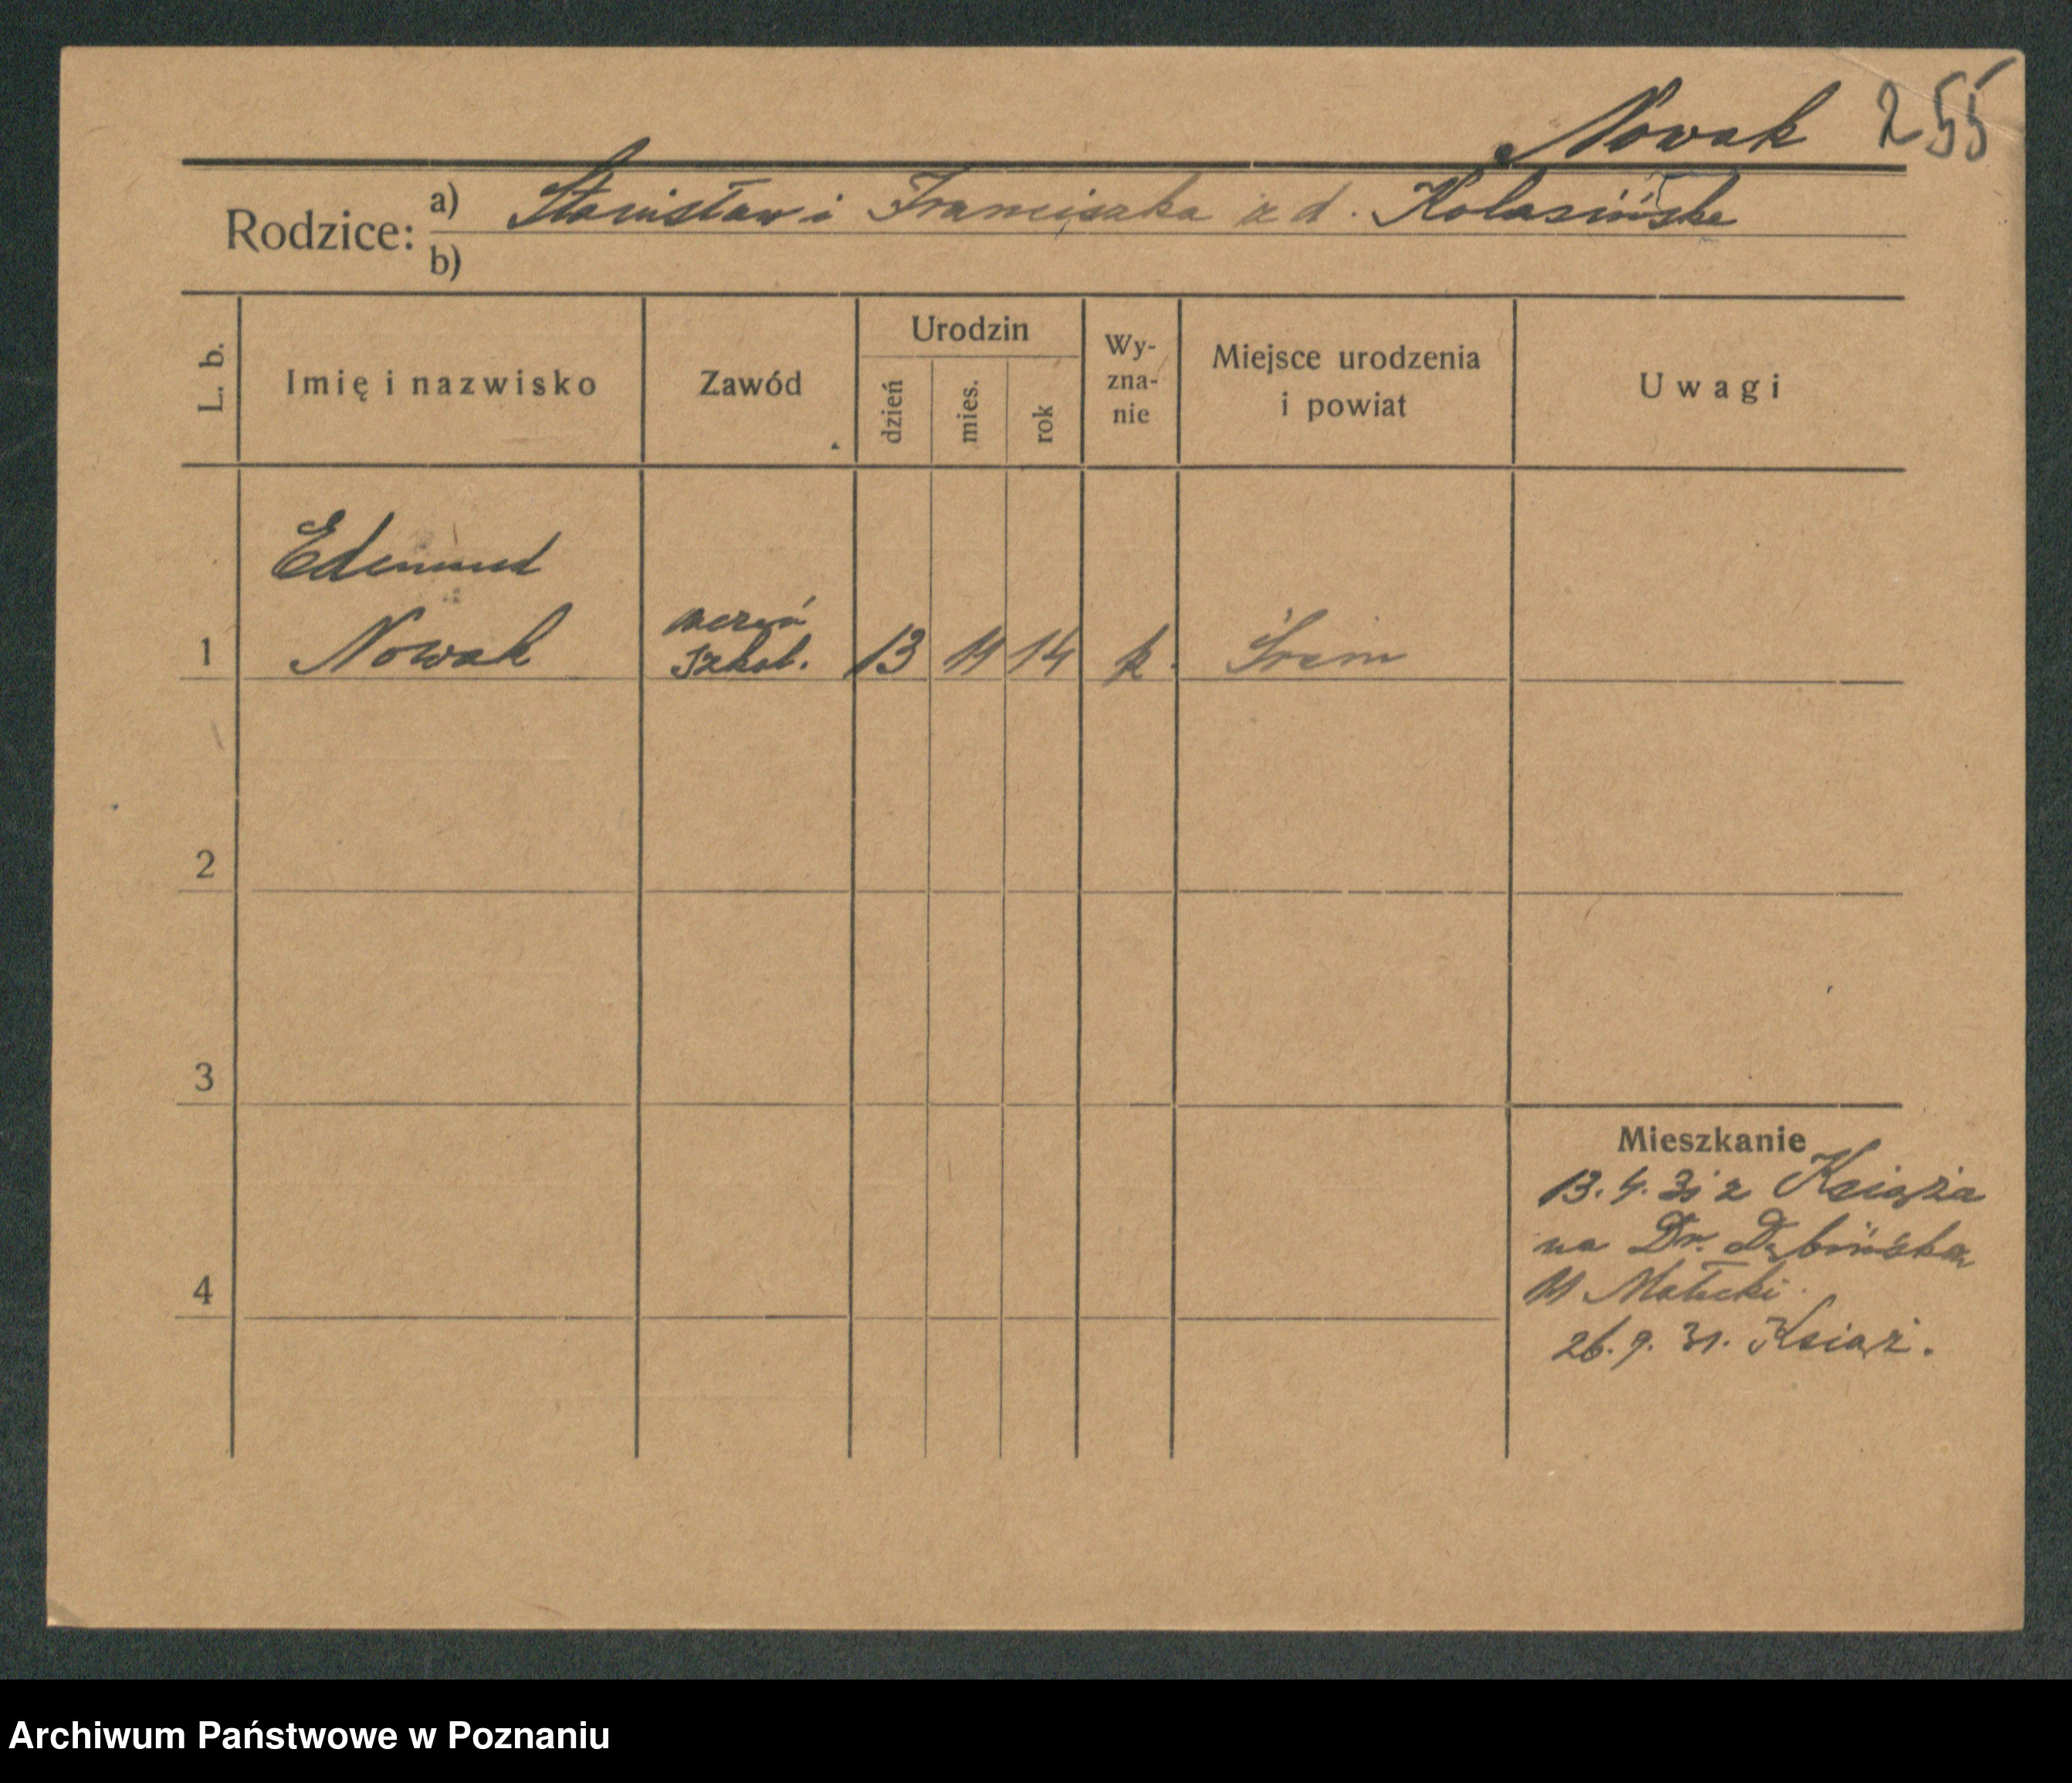 Nowak 255
Rodzice: a) Stanisław i Franciszka z d. Kolasińska
b)
L. b.
Imię i nazwisko
Zawód
Urodzin
dzień
mies.
rok
Wy-
zna-
nie
Miejsce urodzenia
i powiat
Uwagi
Edmund
1 Nowak uczeń szkol. 13 11 14 k. Śrem
2
3
4
Mieszkanie
13. 4. 31 z Książa
na Dr. Dębińska
11 Małecki.
26. 9. 31. Książ.
Archiwum Państwowe w Poznaniu